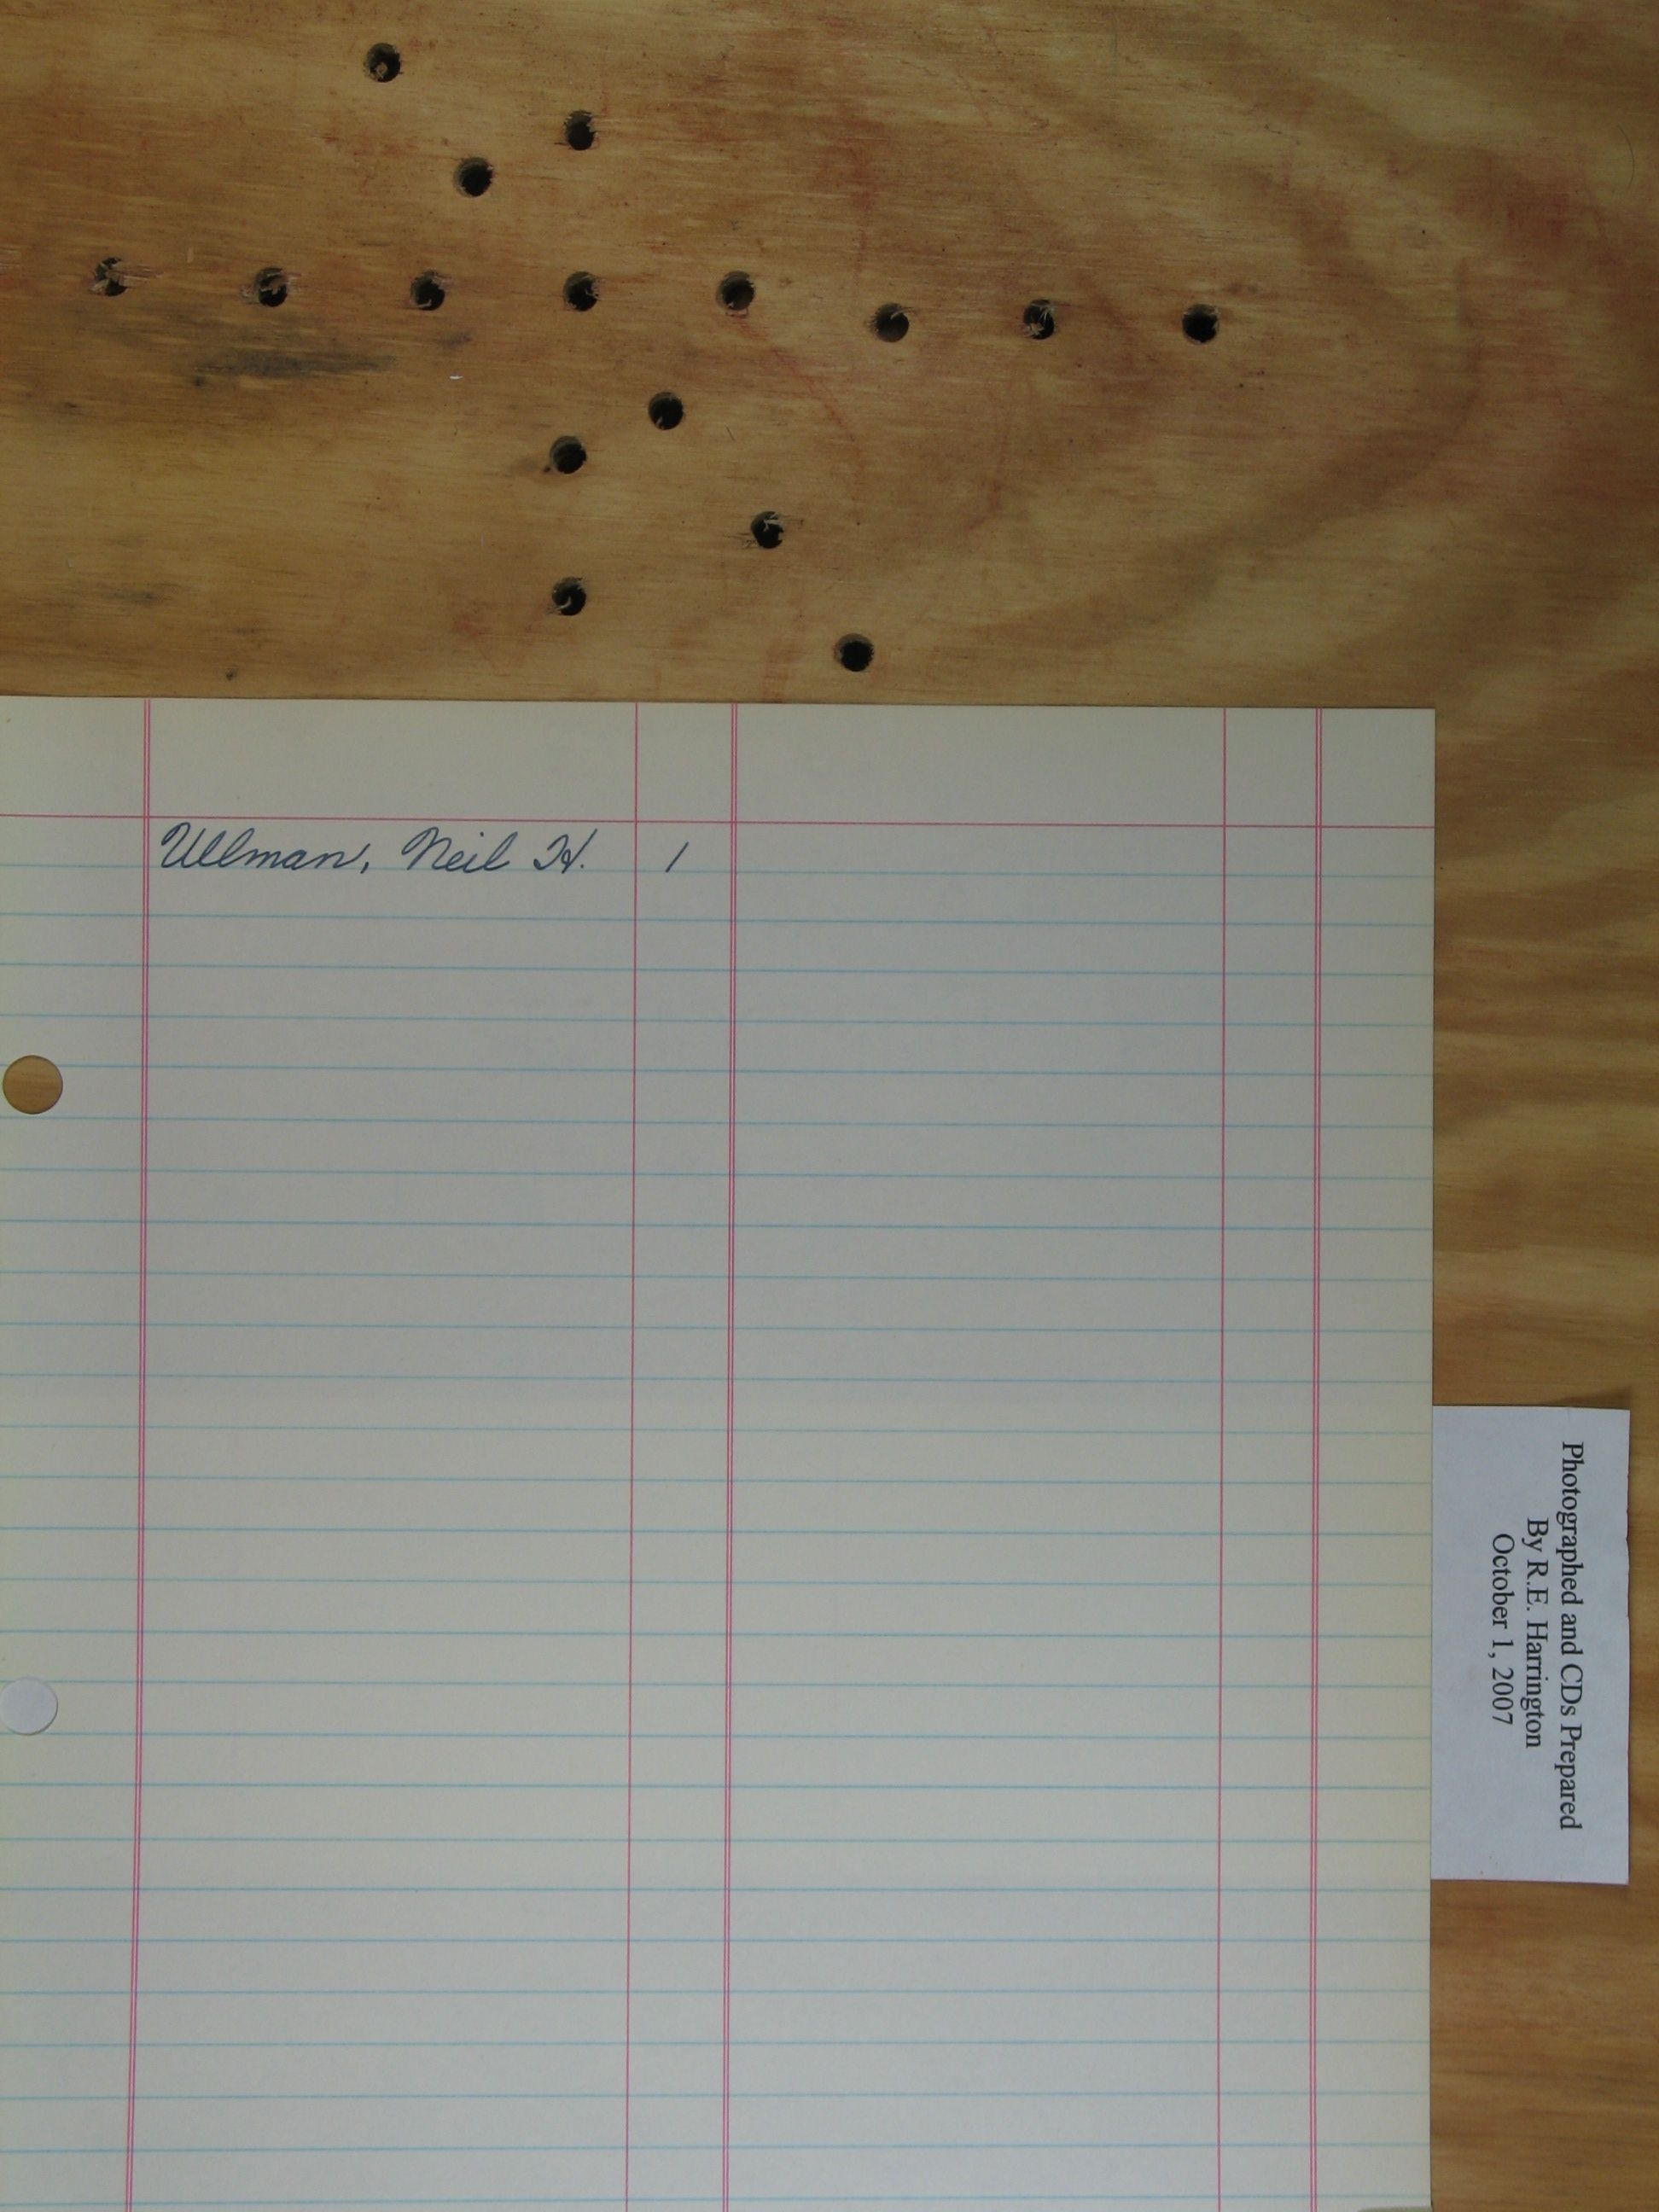 Ullman, Neil H. 1
Photographed and CDs Prepared
By R.E. Harrington
October 1, 2007